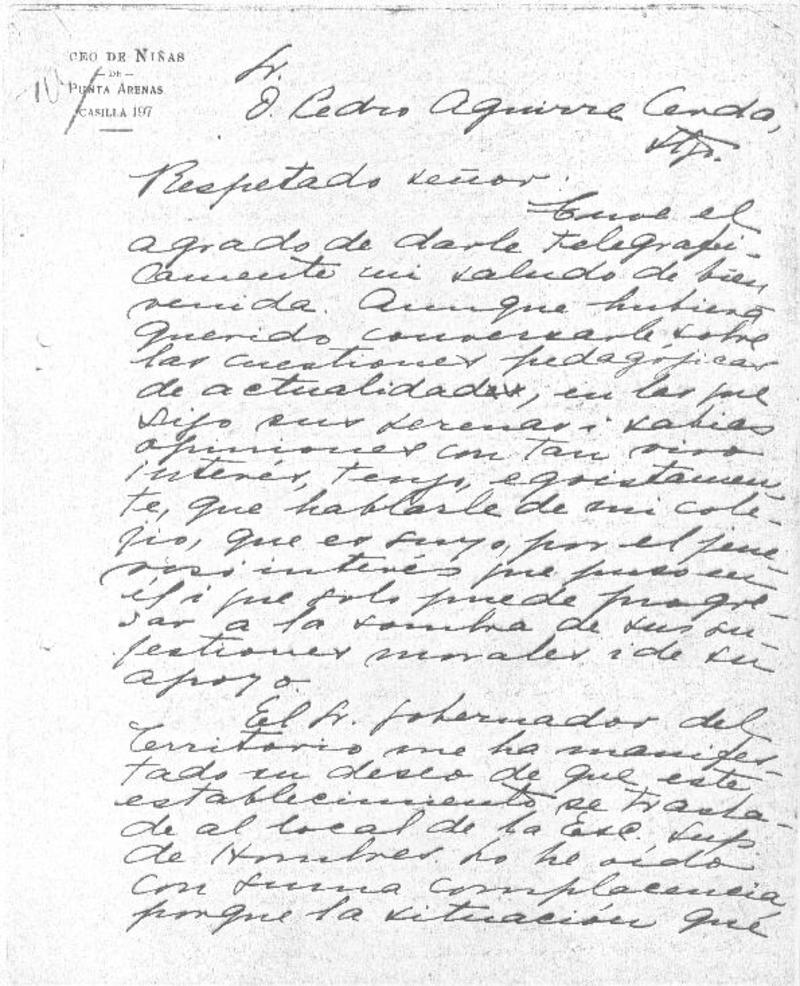 CEO DE NIÑAS
— DE —
PUNTA ARENAS
CASILLA 197
Sr.
D. Pedro Aguirre Cerda,
Stgo.
Respetado señor:
Tuve el
agrado de darle telegrafi-
camente mi saludo de bien
venida. Aunque hubiera
querido conversarle sobre
las cuestiones pedagójicas
de actualidad, en las que
sigo sus serenas i sabias
opiniones con tan vivo
interés, tengo, egoistamen-
te, que hablarle de mi cole-
jio, que es suyo, por el jene-
roso interés que puso en
él i que solo puede progre-
sar a la sombra de sus su-
jestiones morales i de su
apoyo.
El Sr. Gobernador del
Territorio me ha manifes-
tado su deseo de que este
establecimiento se trasla-
de al local de la Esc. Sup.
de Hombres. Lo he oido
con suma complacencia,
porque la situación que